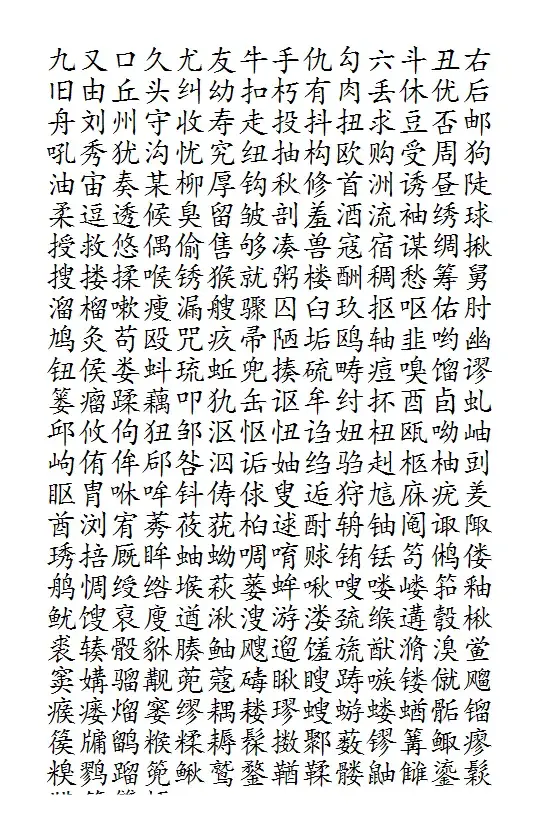 九又口久尤友牛手仇勾六斗丑右
旧由丘头纠幼扣朽有肉丢休优后
舟刘州守收寿走投抖扭求豆否邮
吼秀犹沟忧究纽抽构欧购受周狗
油宙奏某柳厚钩秋修首洲诱昼陡
柔逗透候臭留皱剖羞酒流袖绣球
授救悠偶偷售够凑兽寇宿谋绸揪
搜搂揉喉锈猴就粥楼酬稠愁筹舅
溜榴嗽瘦漏艘骤囚臼玖抠呕佑肘
鸠灸苟殴咒疚帚陋垢鸥轴韭哟幽
钮侯娄蚪琉蚯兜揍硫畴痘嗅馏谬
篓瘤蹂藕叩犰缶讴牟纣抔酉卣虬
邱攸佝狃邹沤怄忸诌妞杻瓯呦岫
岣侑侔郈咎泅诟妯绉驺赳柩柚剅
眍胄咻哞钭俦俅叟逅狩訄庥疣羑
酋浏宥莠莜莸桕逑酎辀铀阄诹陬
琇掊厩眸蚰蚴啁唷赇铕铥笱鸺偻
鸼惆绶绺堠萩蒌蛑啾嗖喽嵝筘釉
鱿馊裒廋遒湫溲游溇巯缑遘彀楸
裘辏骰貅腠鲉飕遛馐旒猷滫溴蚃
窦媾骝觏蔸蔻碡瞅瞍踌嗾镂僦飗
瘊瘘熘窭缪耦耧璆螋蝣蝼蝤骺镏
篌牖鹠糇糅耨髹擞鄹薮镠篝鲰瘳
糗鹨蹓篼鳅鹫鍪鞧鞣髅鼬雠鎏鬏